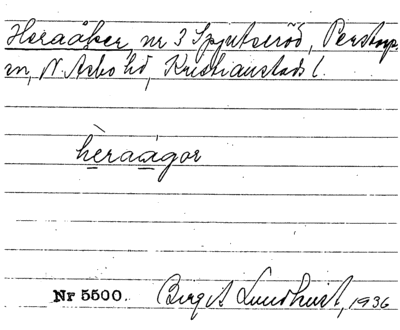 Heraåker, nr 3 Spjutseröd, Perstorp
sn, N. Åsbo hd, Kristianstads l.
hèraàgor
Nr 5500. Birgit Lundhvist, 1936